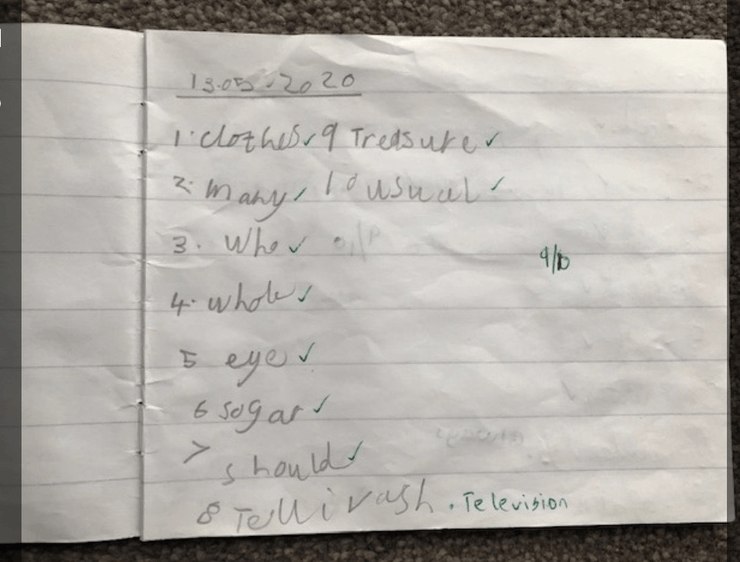 13.05.2020
1. clothes ✓ 9 Treasure ✓
2. many ✓ 10 usual ✓
3. Who ✓
9/10
4. whole ✓
5 eye ✓
6 sogar ✓
7 should ✓
8 Tellivash . Television